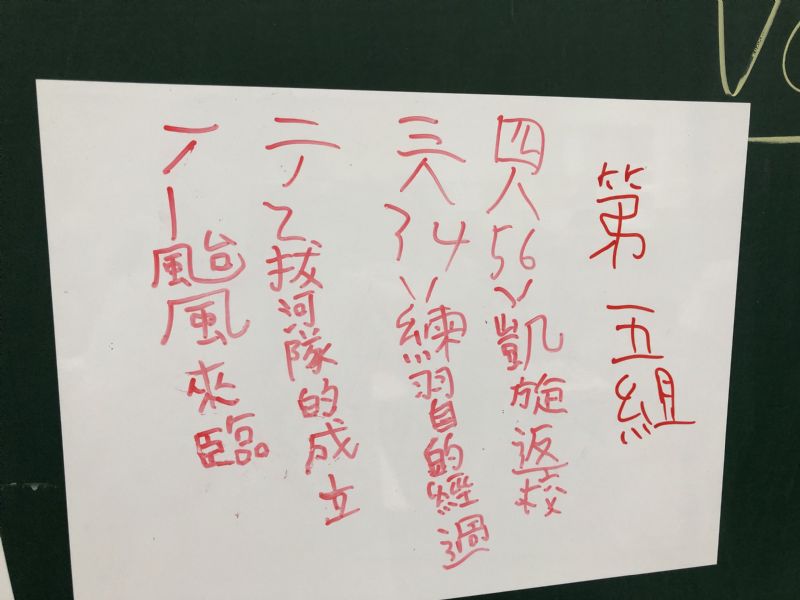 第五組
四(56)凱旋返校
三(34)練習的經過
二/2拔河隊的成立
一/1颱風來臨